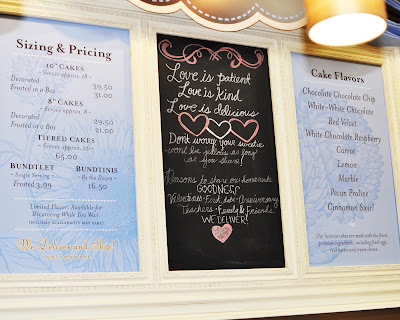 Sizing & Pricing
10" CAKES
Serves approx. 18 -
Decorated 39.50
Frosted in a Box 31.00
8" CAKES
Serves approx. 8 -
Decorated 29.50
Frosted in a Box 21.00
TIERED CAKES
Serves approx. 26 -
65.00
BUNDTLET
- Single Serving -
Frosted 3.99
BUNDTINIS
- By the Dozen -
16.50
Limited Flavors Available for
Decorating While You Wait.
We Deliver and Ship!
Love is patient
Love is kind
Love is delicious
Don't worry your sweetie
won't be jealous as long
as you share!
Reasons to share our homemade
GOODNESS
Valentines · First date · Anniversary
Teachers · Family & Friends
WE DELIVER!
Cake Flavors
Chocolate Chocolate Chip
White-White Chocolate
Red Velvet
White Chocolate Raspberry
Carrot
Lemon
Marble
Pecan Praline
Cinnamon Swirl
Our luscious cakes are made with the finest,
premium ingredients, including fresh eggs,
real butter and cream cheese.